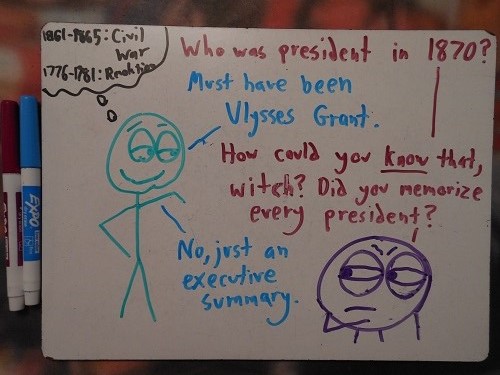 1861-1865: Civil
War
1776-1781: Revolution
Who was president in 1870?
Must have been
Ulysses Grant.
How could you know that,
witch? Did you memorize
every president?
No, just an
executive
summary.
EXPO